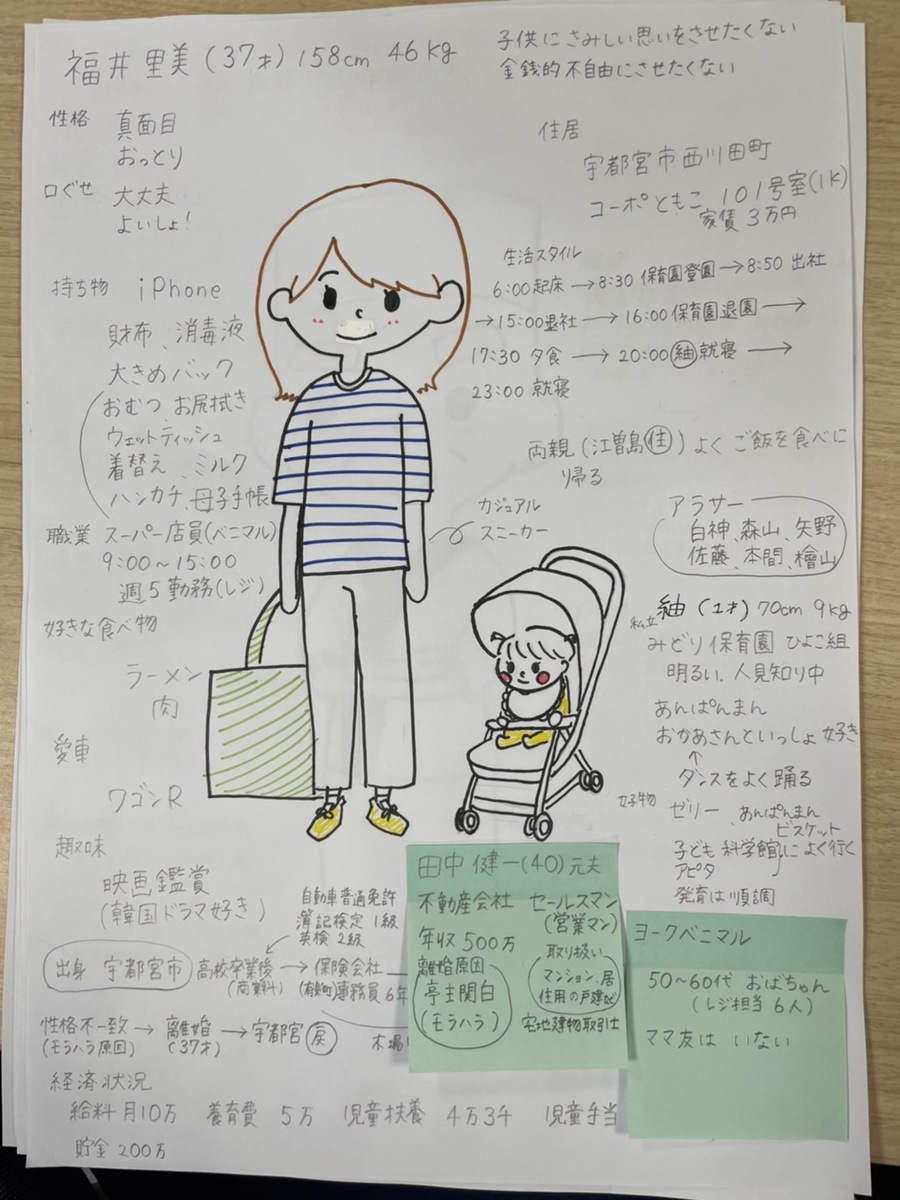 福井 里美 (37才) 158cm 46kg
子供に さみしい思いをさせたくない
金銭的 不自由にさせたくない
性格 真面目
おっとり
口ぐせ 大丈夫
よいしょ!
住居
宇都宮市西川田町
コーポともこ 101号室(1K)
家賃 3万円
生活スタイル
6:00起床→8:30 保育園登園→8:50 出社
→15:00退社→16:00保育園退園→
17:30 夕食→20:00紬就寝→
23:00 就寝
持ち物 iPhone
財布、消毒液
大きめバック
おむつ お尻拭き
ウェットティッシュ
着替え、ミルク
ハンカチ、母子手帳
両親(江曽島住)よく ご飯を食べに
帰る
カジュアル
スニーカー
アラサー
白神、森山、矢野
佐藤、本間、檜山
職業 スーパー店員(ベニマル)
9:00〜15:00
週5勤務(レジ)
好きな食べ物
ラーメン
肉
愛車
ワゴンR
趣味
映画鑑賞
(韓国ドラマ好き)
紬(1才)70cm 9kg
私立
みどり保育園 ひよこ組
明るい、人見知り中
あんぱんまん
おかあさんといっしょ 好き
↑
ダンスをよく踊る
好物
ゼリー、あんぱんまん
ビスケット
子ども科学館によく行く
アピタ
発育は順調
自動車普通免許
簿記検定 1級
英検 2級
出身 宇都宮市 高校卒業後→保険会社
(商業科) 事務員 6年
性格不一致→離婚→宇都宮戻
(モラハラ原因) (37才)
経済状況
給料月10万 養育費 5万 児童扶養 4万3千 児童手当
貯金 200万
田中 健一(40)元夫
不動産会社 セールスマン
(営業マン)
年収500万
取り扱い
離婚原因
マンション、居
亭主関白
住用の戸建など
(モラハラ)
宅地建物取引士
ヨークベニマル
50〜60代 おばちゃん
(レジ担当 6人)
ママ友は いない